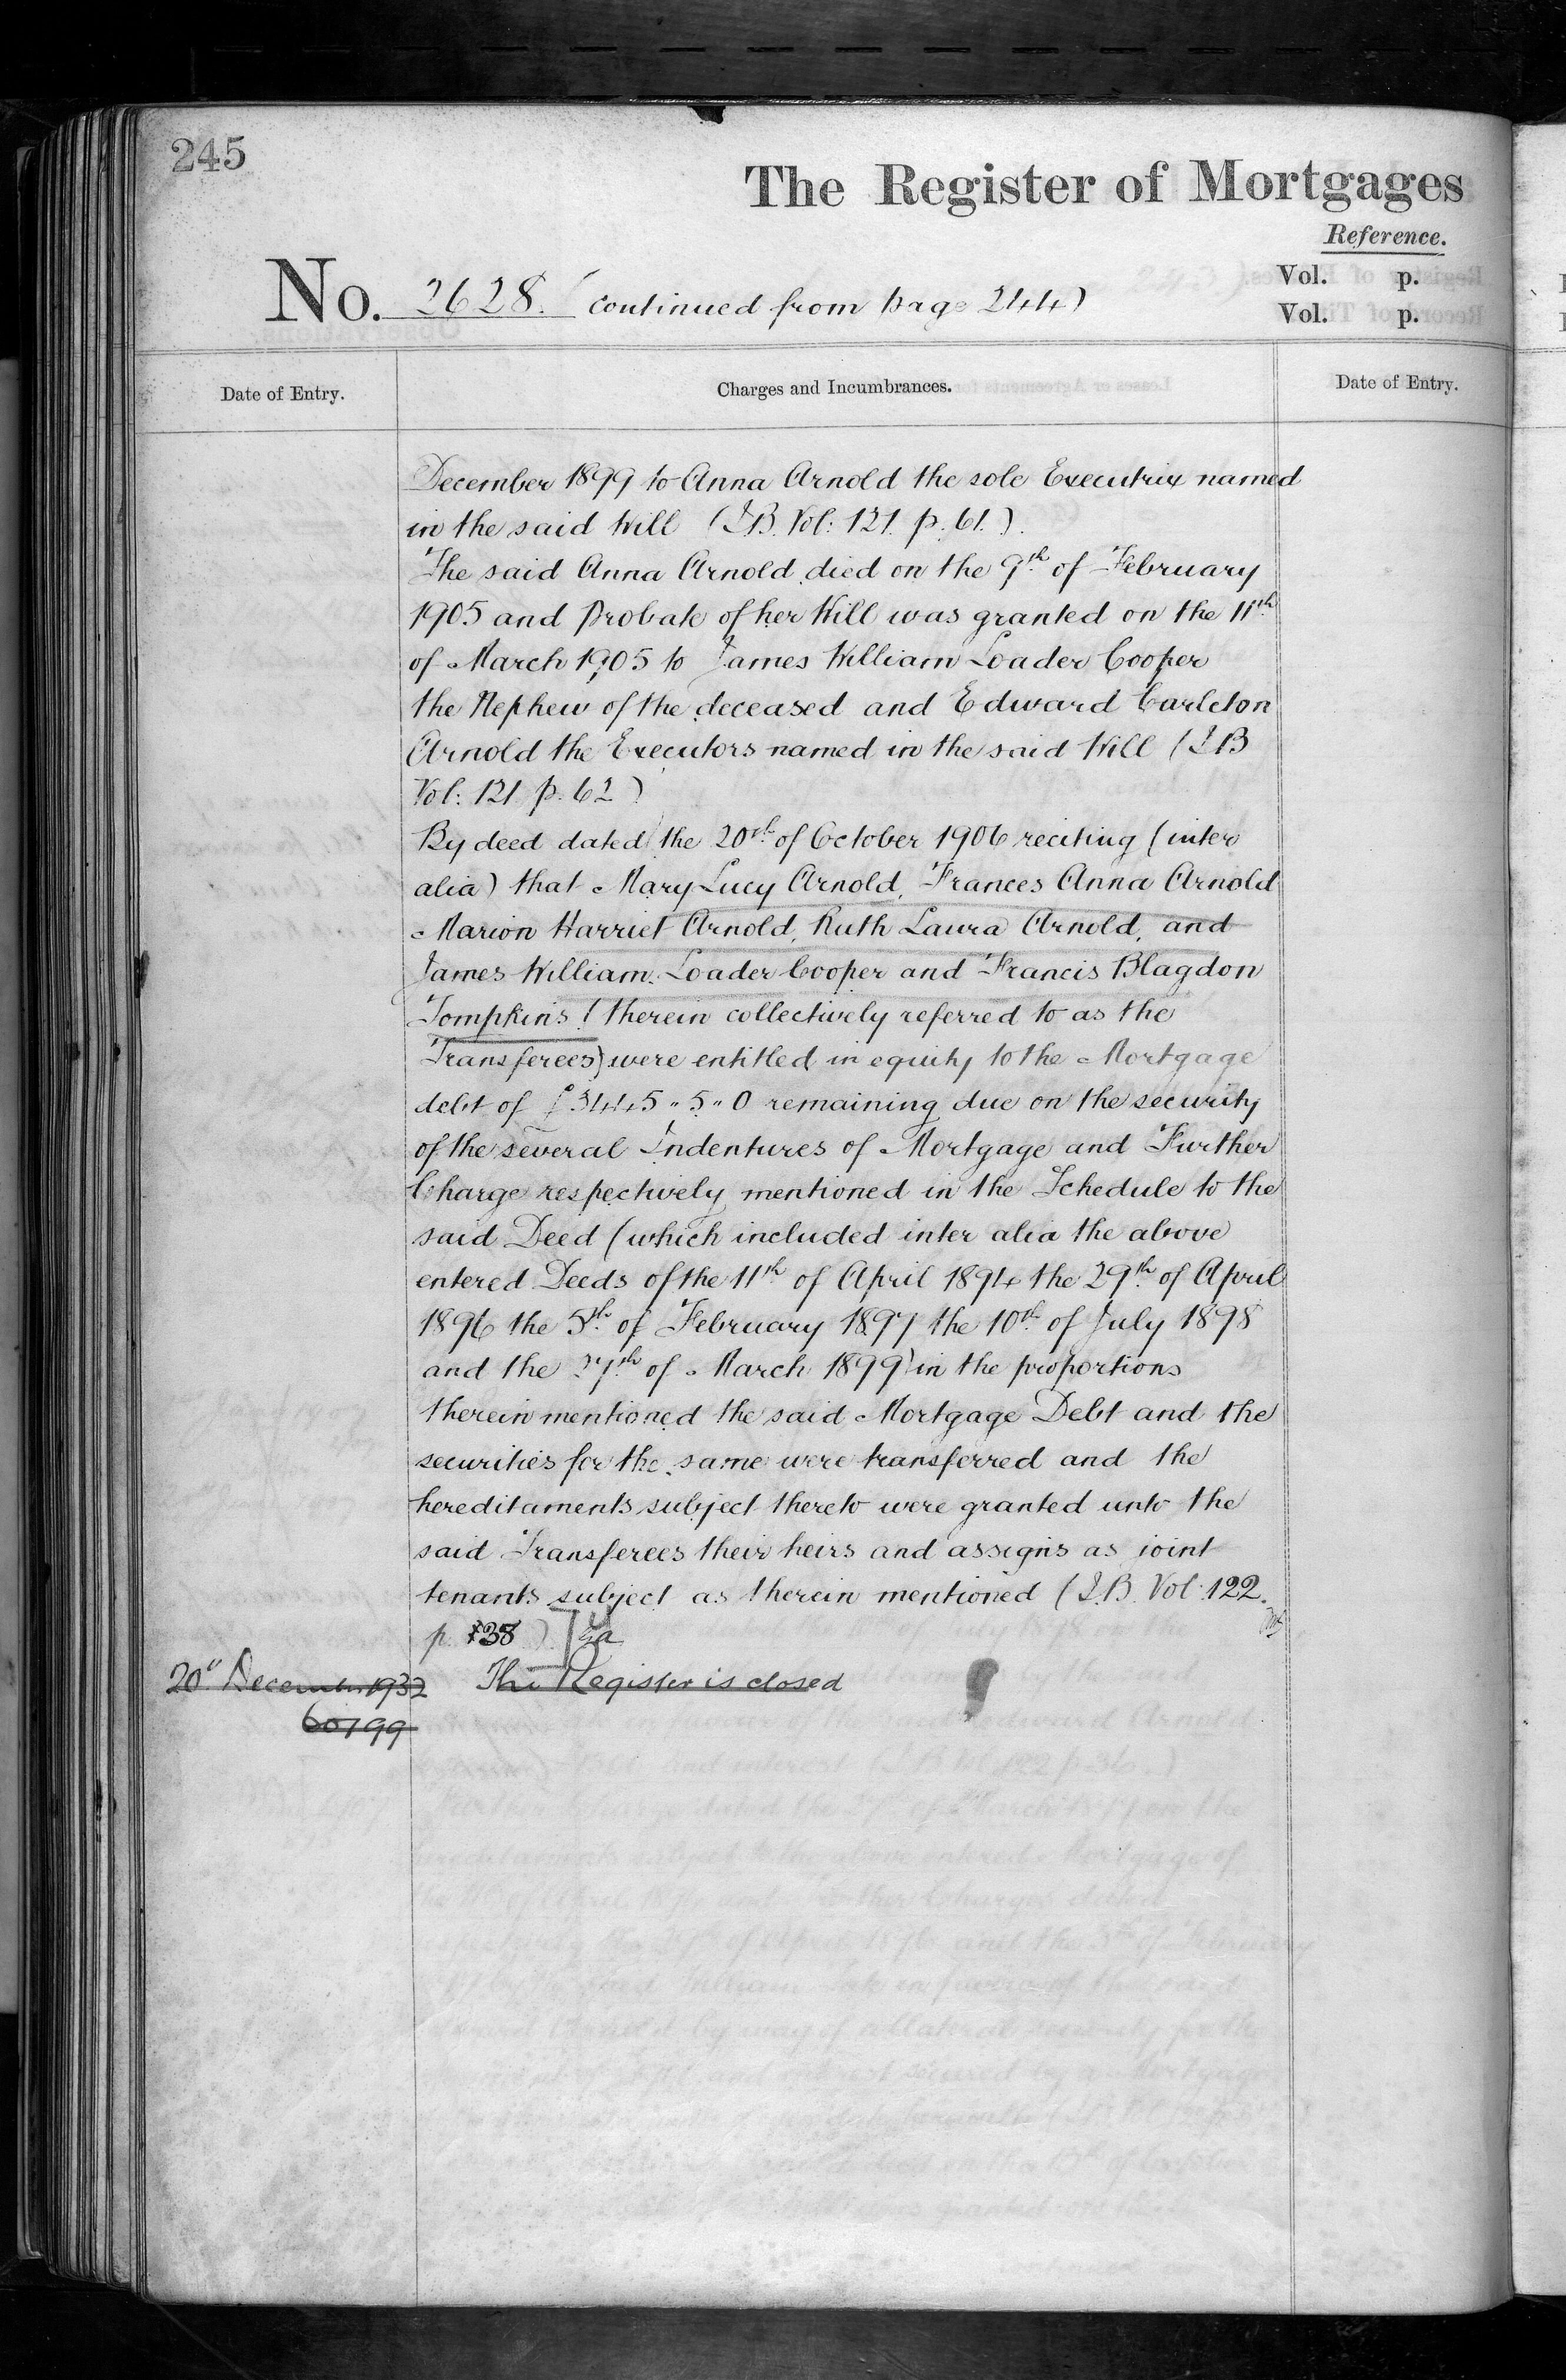 245
The Register of Mortgages
Reference.
No. 2628. (continued from page 244)
Vol. p.
Vol. p.
Date of Entry.
Charges and Incumbrances.
Date of Entry.
December 1899 to Anna Arnold the sole Executrix named
in the said Will (I.B. Vol: 121. p. 61.).
The said Anna Arnold died on the 9th of February
1905 and Probate of her Will was granted on the 11th
of March 1905 to James William Loader Cooper
the Nephew of the deceased and Edward Carleton
Arnold the Executors named in the said Will (I.B
Vol: 121 p. 62)
By deed dated the 20th of October 1906 reciting (inter
alia) that Mary Lucy Arnold, Frances Anna Arnold
Marion Harriet Arnold, Ruth Laura Arnold, and
James William Loader Cooper and Francis Blagdon
Tompkins (therein collectively referred to as the
Transferees) were entitled in equity to the Mortgage
debt of £3445 " 5 " 0 remaining due on the security
of the several Indentures of Mortgage and Further
Charge respectively mentioned in the Schedule to the
said Deed (which included inter alia the above
entered Deeds of the 11th of April 1894 the 29th of April
1896 the 5th of February 1897 the 10th of July 1898
and the 27th of March 1899) in the proportions
therein mentioned the said Mortgage Debt and the
securities for the same were transferred and the
hereditaments subject thereto were granted unto the
said Transferees their heirs and assigns as joint
tenants subject as therein mentioned (I.B. Vol: 122.
p. 38)
20" December 1932 The Register is closed
60199